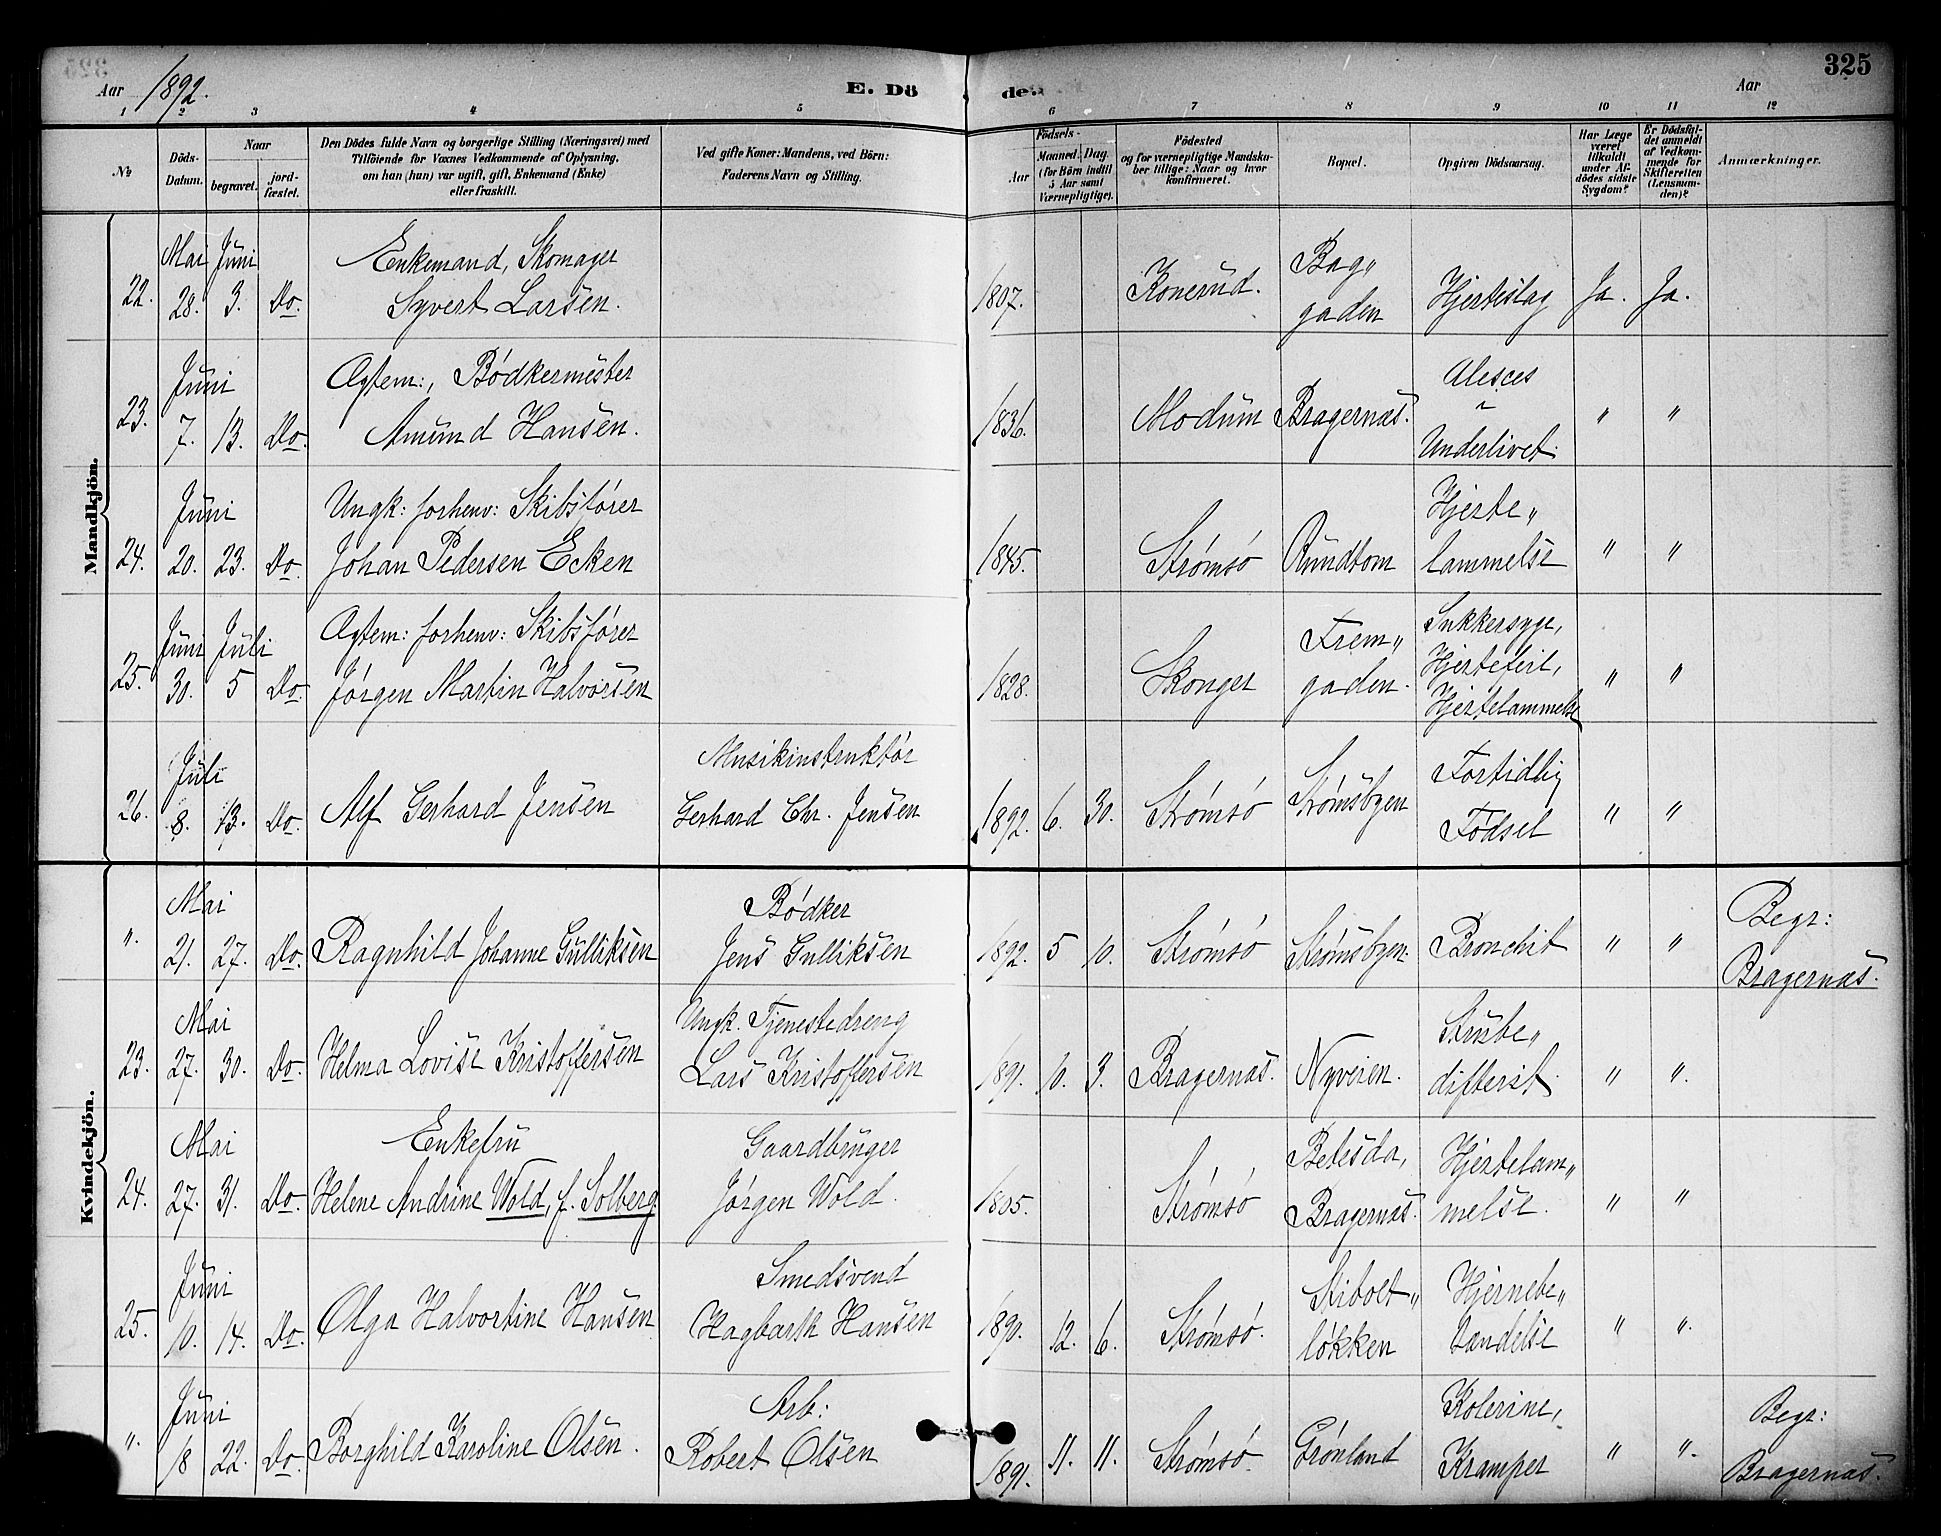 325
Aar 1892. E. Döde. Aar
1 2 3 4 5 6 7 8 9 10 11 12
No
Döds-Datum.
Naar
begravet.
jordfæstet.
Den Dödes fulde Navn og borgerlige Stilling (Næringsvei) med
Tilföiende for Voxnes Vedkommende af Oplysning,
om han (hun) var ugift, gift, Enkemand (Enke)
eller fraskilt.
Ved gifte Koner: Mandens, ved Börn:
Faderens Navn og Stilling.
Födsels-
Aar
Maaned. Dag.
(for Börn indtil
5 Aar samt
Værnepligtige).
Födested
og for værnepligtige Mandskaber tillige: Naar og hvor
konfirmeret.
Bopæl.
Opgiven Dödsaarsag.
Har Læge
været
tilkaldt
under Afdödes sidste
Sygdom?
Er Dödsfaldet anmeldt
af Vedkommende for
Skifteretten
(Lensmanden)?
Anmærkninger.
Mandkjön.
22. Mai 28. Juni 3. Do.
Enkemand, Skomager
Syvert Larsen.
1807. Konerud. Bag„
gaden
Hjerteslag Ja. Ja.
23. Juni 7. 13. Do.
Ægtem:, Bødkermester
Amund Hansen.
1836. Modum Bragernæs.
Absces
i
Underlivet. " "
24. Juni 20. 23. Do.
Ungk: forhenv: Skibsfører
Johan Pedersen Ecken
1845. Strømsö Rundtom
Hjerte„
lammelse " "
25. Juni 30. Juli 5 Do.
Ægtem: forhenv: Skibsfører
Jørgen Martin Halvorsen
1828. Skoger Frem„
gaden.
Sukkersyge,
Hjertefeil,
Hjertelammelse " "
26. Juli 8. 13. Do.
Alf Gerhard Jensen
Musikinstruktør
Gerhard Chr. Jensen
1892. 6. 30. Strømsö Strømsbyen
Fortidlig
Fødsel " "
Kvindekjön.
". Mai 21. 27. Do.
Ragnhild Johanne Gulliksen
Bødker
Jens Gulliksen
1892. 5 10. Strømsö Strømsbyen. Bronchit " "
Begr:
Bragernæs.
23. Mai 27. 30. Do.
Helma Lovise Kristoffersen
Ungk. Tjenestedreng
Lars Kristoffersen
1891. 10. 3. Bragernæs. Nyveien.
Strube„
difterit. " ".
24. Mai 27. 31. Do.
Enkefru
Helene Andrine Wold, f. Solberg.
Gaardbruger
Jørgen Wold.
1805. Strømsö
Betesda,
Bragernæs.
Hjertelam„
melse. " "
25. Juni 10. 14. Do.
Olga Halvortine Hansen
Smedsvend
Hagbarth Hansen
1890. 12. 6. Strømsö.
Stibolt„
løkken
Hjernebe„
tændelse " ".
". Juni 18 22. Do.
Borghild Karoline Olsen.
Arb:
Robert Olsen
1891. 11. 11. Strømsö. Grønland
Kolerine,
Kramper " ".
Begr:
Bragernæs.